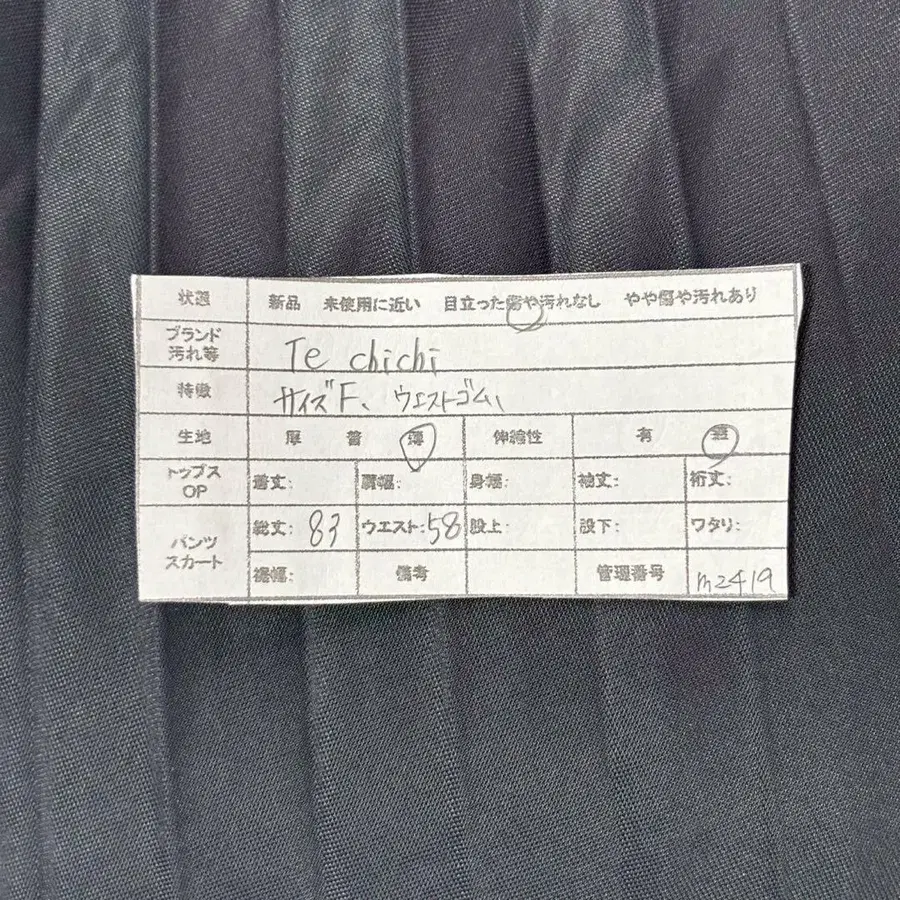 状態 新品 未使用に近い 目立った傷や汚れなし やや傷や汚れあり
ブランド
汚れ等 Te chichi
特徴 サイズF、ウエストゴム、
生地 厚 普 薄 伸縮性 有 無
トップス
OP 着丈: 肩幅: 身幅: 袖丈: 裄丈:
パンツ
スカート 総丈: 83 ウエスト: 58 股上: 股下: ワタリ:
裾幅: 備考 管理番号 m2419